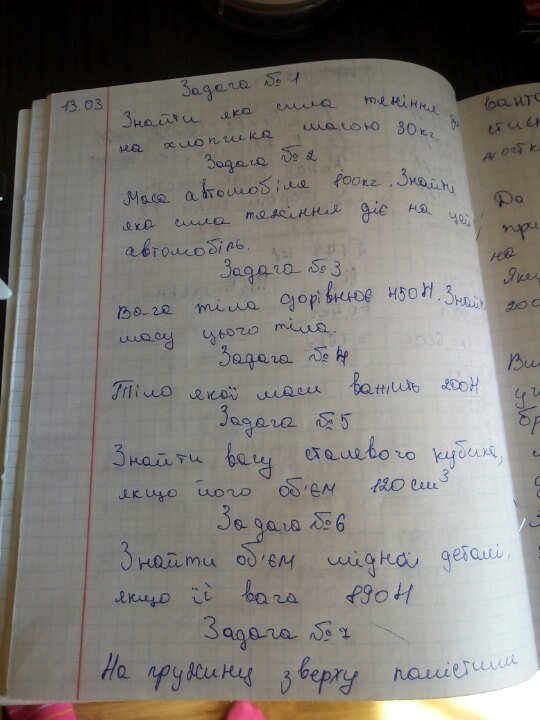 13.03
Задача № 1
Знайти яка сила тяжіння
на хлопчика масою 30кг.
Задача № 2
Маса автомобіля 800кг. Знайти
яка сила тяжіння діє на цей
автомобіль.
Задача № 3
Вага тіла дорівнює 450Н. Знайти
масу цього тіла.
Задача № 4
Тіло якої маси важить 200Н
Задача № 5
Знайти вагу сталевого кубика,
якщо його об'єм 120 см³
Задача № 6
Знайти об'єм мідної деталі,
якщо її вага 890Н
Задача № 7
На пружину зверху помістили
До
при
на
200